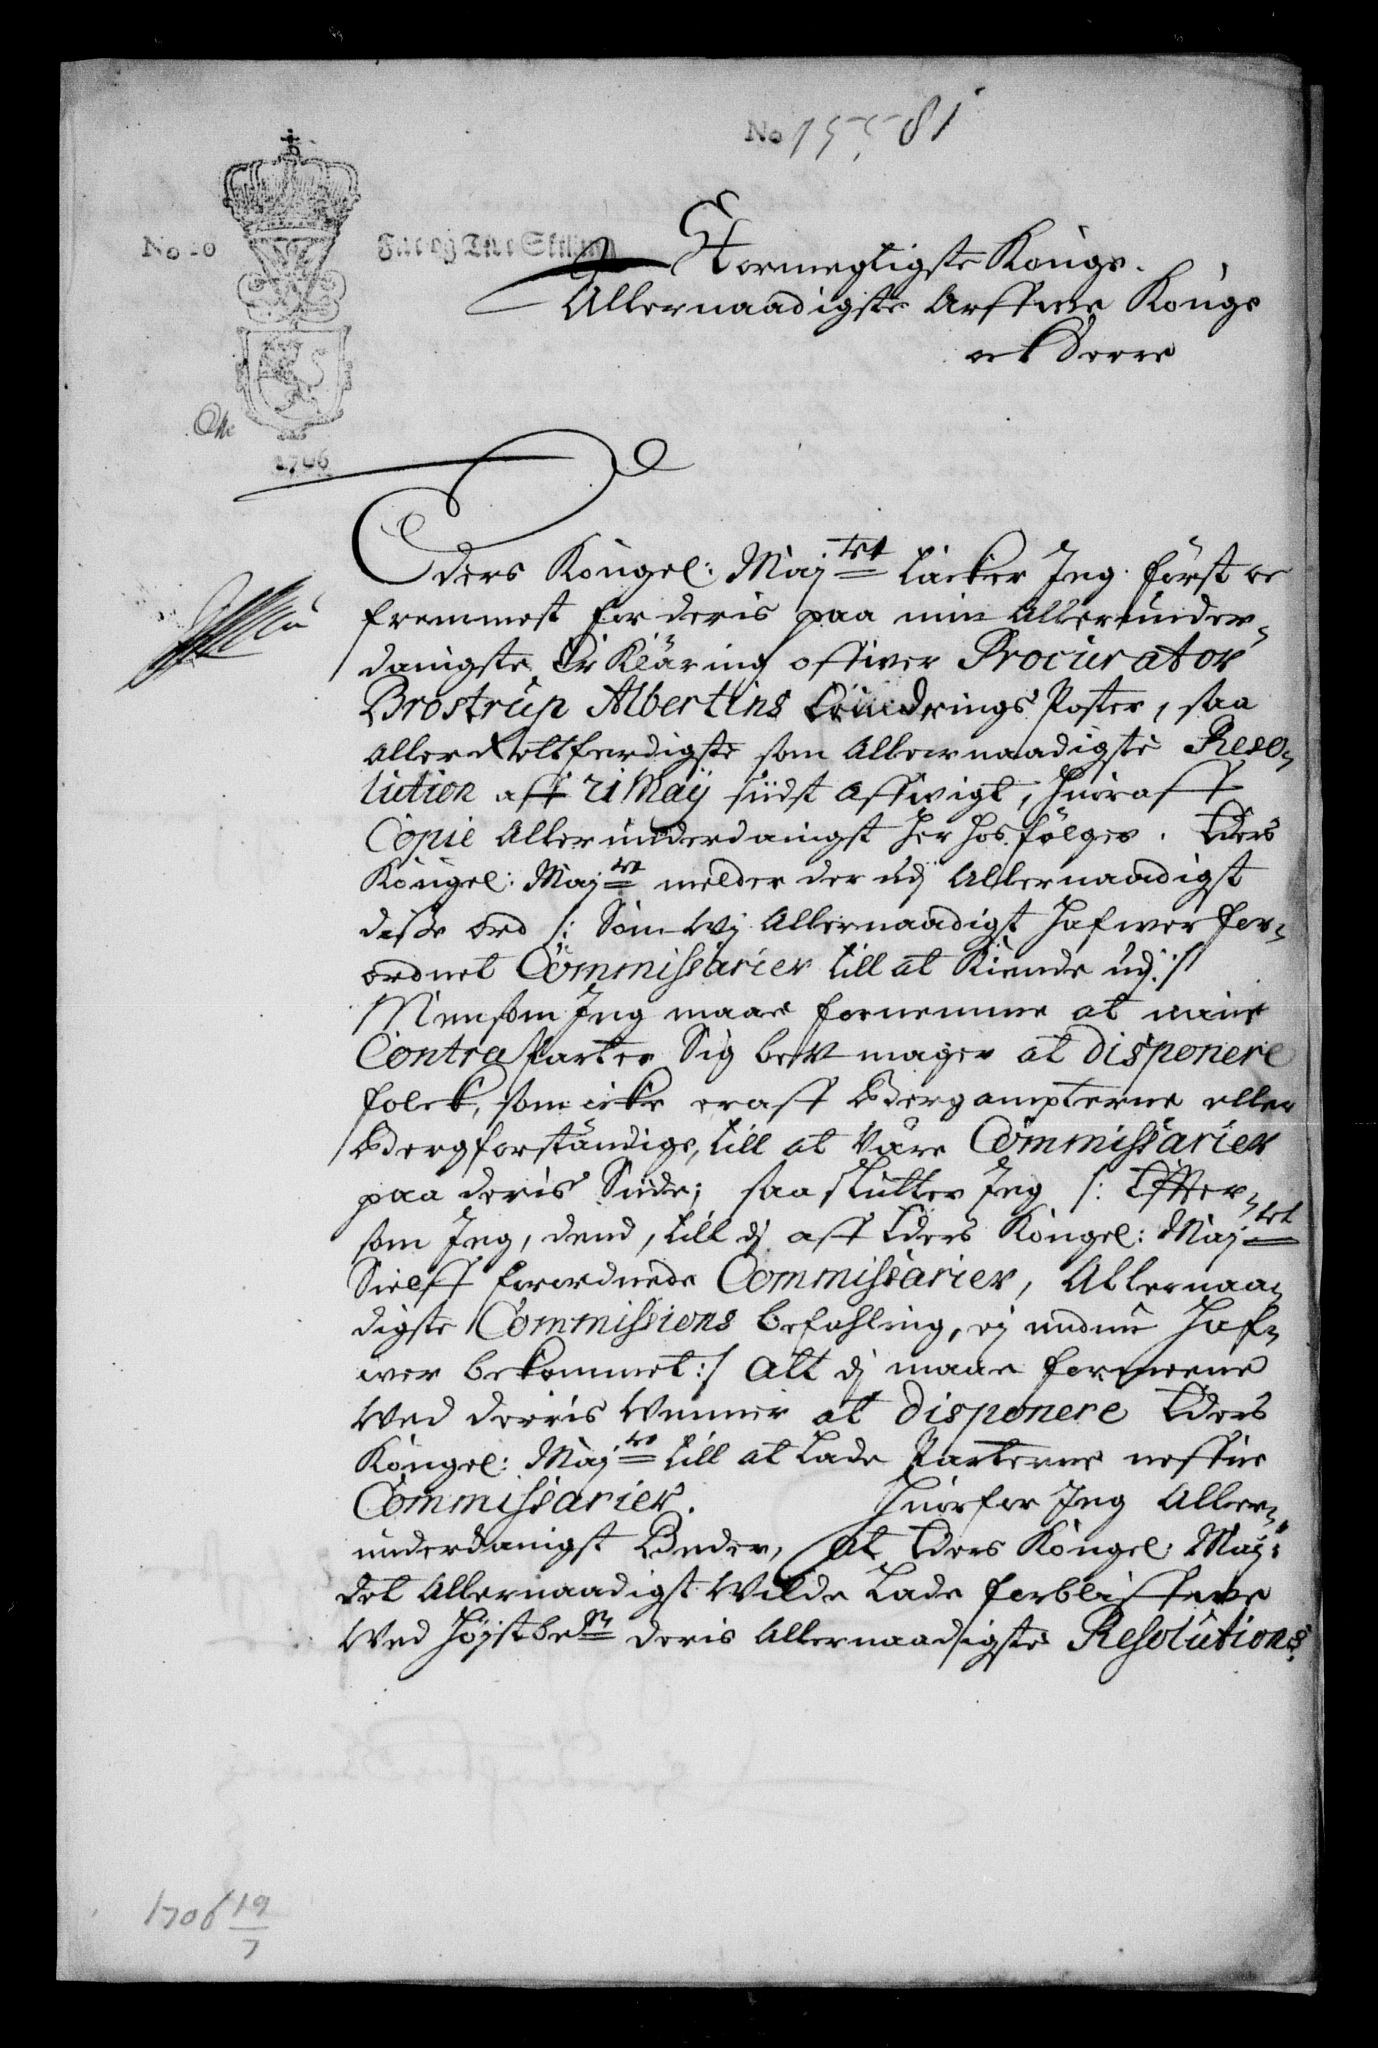 No 15581
No 20
Fire og Tive Skilling
Stormegtigste Konge.
Allernaadigste Arffwe Konge
ock Herre
1706
Eders Kongel: Maj:tet tacker Jeg først oc
fremmest for deris paa min Allerunder-
danigste Erklæring offwer Procurator
Brostrup Albertins Poster, saa
Allerrettferdigste som Allernaadigste Reso-
lution aff 21 Maij siidst affwigt, huoraff
Copie Allerunderdanigst her hos følger. Eders
Kongel: Maj:tet melder der udj Allernaadigst
disse ord /: Som Wj Allernaadigst hafwer for-
ordnet Commissarier till at Kiende udj :/
Men som Jeg maae fornemme at mine
Contra Parter Sig bemager at disponere
folck, som icke er aff Bergampterne eller
Bergforständige, till at Väre Commissarier
paa deris Siide; saa slutter Jeg /: Effter-
som Jeg, dend, till dj aff Eders Kongel: Maj:tet
Sielff forordnede Commissarier, Allernaa-
digste Commissions befahling, ej endnu haf-
wer bekommet :/ Att dj maae formeene
Wed derris Venner at disponere Eders
Kongel: Maj:tet till at Lade Parterne neffne
Commissarier. Huorfor Jeg Aller-
underdanigst Beder, At Eders Kongel: Maj:
det Allernaadigst Wilde Lade forbliffwe
Wed høystbe:te deris Allernaadigste Resolutions
1706 19/7